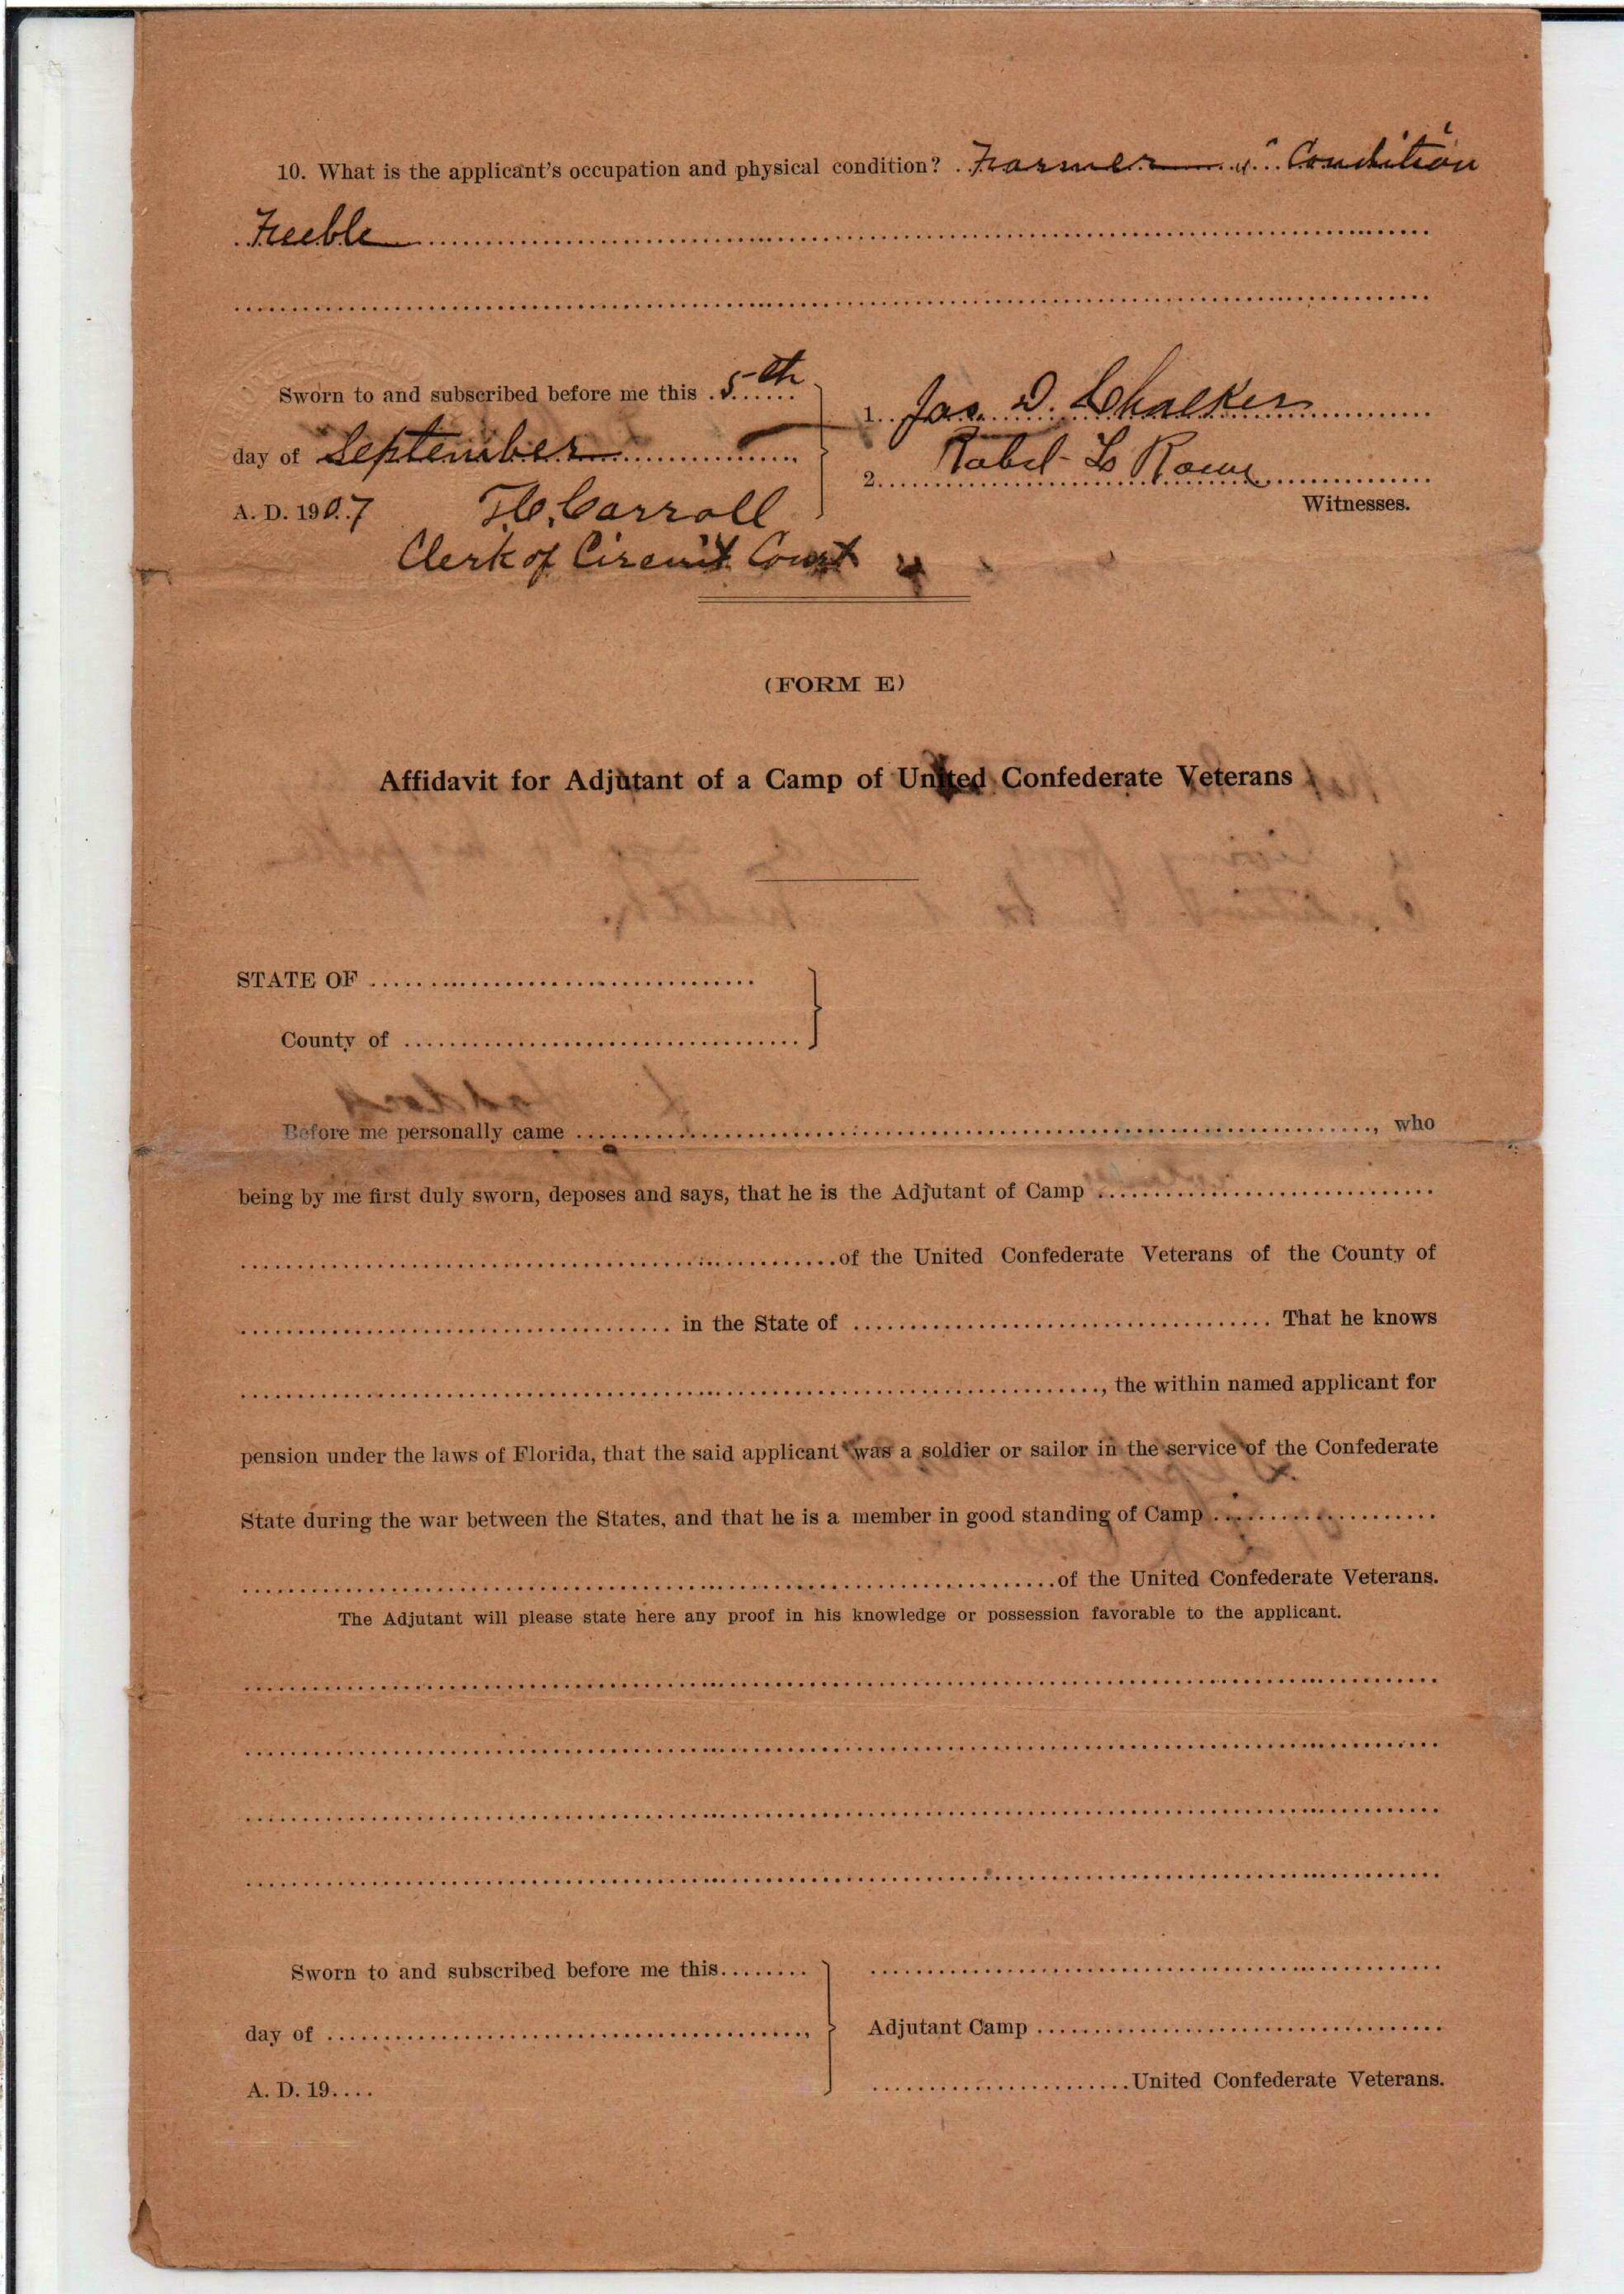 10. What is the applicant's occupation and physical condition? Farmer & Condition
Feeble
Sworn to and subscribed before me this 5th
day of September
A. D. 1907
1. Jas. D. Chalker
2. Robt L Rowe
Witnesses.
Carroll
Clerk of Circuit Court
(FORM E)
Affidavit for Adjutant of a Camp of United Confederate Veterans
STATE OF
County of
Before me personally came , who
being by me first duly sworn, deposes and says, that he is the Adjutant of Camp
of the United Confederate Veterans of the County of
in the State of That he knows
, the within named applicant for
pension under the laws of Florida, that the said applicant was a soldier or sailor in the service of the Confederate
State during the war between the States, and that he is a member in good standing of Camp
of the United Confederate Veterans.
The Adjutant will please state here any proof in his knowledge or possession favorable to the applicant.
Sworn to and subscribed before me this
day of ,
A. D. 19
Adjutant Camp
United Confederate Veterans.